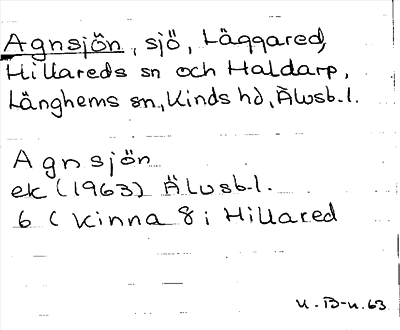 Agnsjön, sjö, Läggared,
Hillareds sn och Haldarp,
Länghems sn, Kinds hd, Älvsb. l.
Agnsjön
ek (1963) Älvsb. l.
6 ( Kinna 8 i Hillared
U. B-n. 63